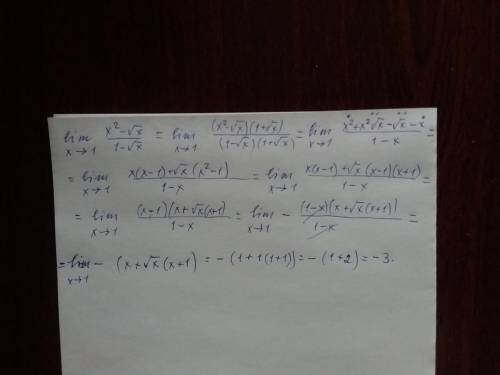 lim x→1 (x² − √x)/(1 − √x) = lim x→1 ((x² − √x)(1 + √x))/((1 − √x)(1 + √x)) = lim x→1 (x² + x²√x − √x − x)/(1 − x) =
= lim x→1 (x(x−1) + √x (x² − 1))/(1 − x) = lim x→1 (x(x−1) + √x (x−1)(x+1))/(1 − x) =
= lim x→1 ((x−1)(x + √x(x+1))/(1 − x) = lim x→1 − ((1−x)(x + √x(x+1)))/(1−x) =
= lim x→1 − (x + √x(x+1) = −(1 + 1(1+1)) = −(1+2) = −3.